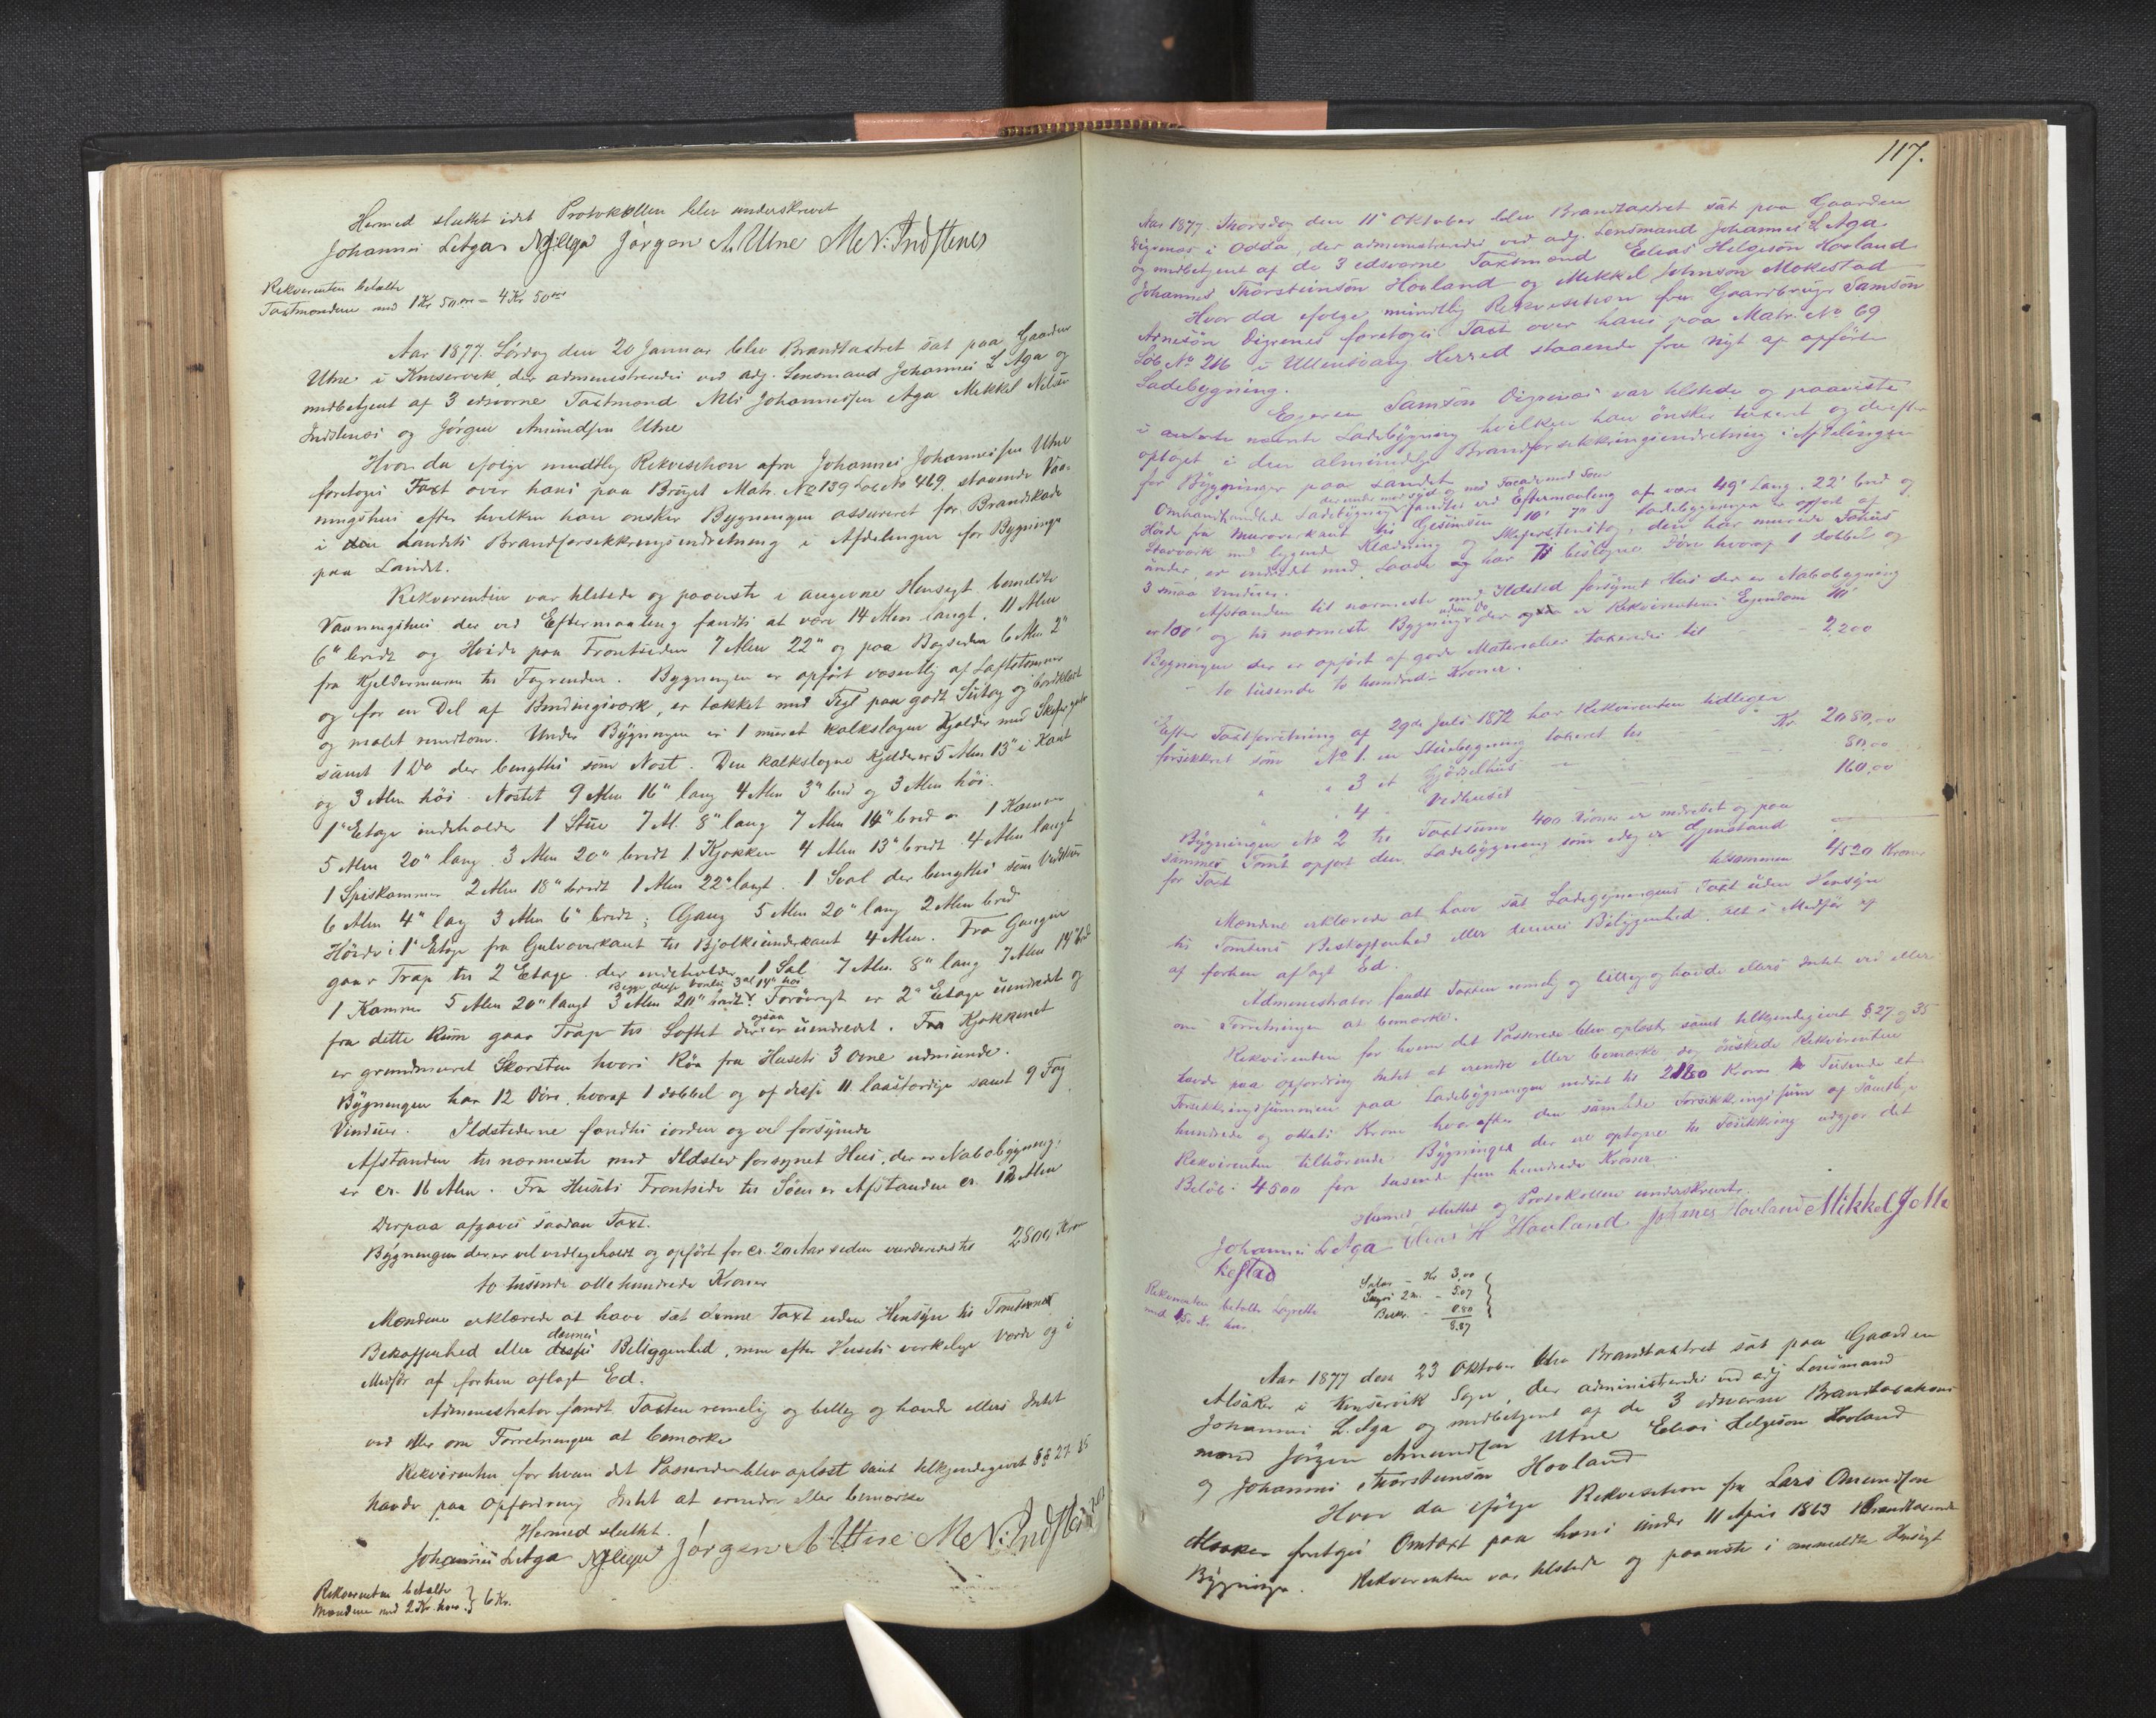 Hermed sluttet idet Protokollen blev underskrevet
Johannes L Aga Jørgen A. Utne M. N. Indstenes
Rekvirenten betalte
Taxtmændene med 1 Kr 50 øre = 4 Kr 50 øre
Aar 1877. Lørdag den 20 Januar blev Brandtaxtret sat paa Gaarden
Utne i Kinservik, der administreredes ved adj. Lensmand Johannes L Aga og
medbetjent af 3 edsvorne Taxtmænd Nils Johannessen Aga Mekkel Nilsen
Indstenes og Jørgen Amundsen Utne
Hvor da efølge mundtlig Rekvisition afra Johannes Johannessen Utne
foretoges Taxt over hans paa Bruget Matr. No 139 Løb No 469 staaende Vaa-
ningshus efter hvilken han ønsker Bygningen assureret for Brandskade
i den Landets Brandforsekkringsindretning i Afdelingen for Bygninger
paa Landet.
Rekvirenten var tilstede og paaviste i angivne Hensigt bemeldte
Vaaningshus der ved Eftermaaling fandtes at være 14 Alen langt, 11 Alen
6" bredt og Høide paa Frontsiden 7 Alen 22" og paa Bagsiden 6 Alen 2"
fra Kjeldermuren til Tagrenden. Bygningen er opført væsentlig af Laftetømmer
og for en Del af Bindingsværk, er tækket med Tegl paa godt Sutag og bordklædt
og malet rundtom. Under Bygningen er 1 muret kalkslagen Kjelder med
samt 1 Do der benyttes som Nøst. Den kalkslagne Kjelder er 5 Alen 13" i Kant
og 3 Alen høi. Nøstet 9 Alen 16" lang 4 Alen 3" bred og 3 Alen høi.
1ste Etage indeholder 1 Stue 7 Al. 8" lang 7 Alen 14" bred 1 Kammer
5 Alen 20" lang. 3 Alen 20" bredt 1 Kjøkken 4 Alen 13" bredt. 4 Alen langt
1 Spiskammer 2 Alen 18" bredt 1 Alen 22" langt. 1 Sval der benyttes som Vedskur
6 Alen 4" lang 3 Alen 6" bredt; Gang 5 Alen 20" lang 2 Alen bred
Høide i 1ste Etage fra Gulvoverkant til Bjelkeunderkant 4 Alen. Fra Gangen
gaar Trap til 2 Etage der indeholder 1 Sal 7 Alen 8" lang 7 Alen 14" bred
1 Kammer 5 Alen 20" langt 3 Alen 20" bredt. Forøvrigt er 2den Etage uindredet og
fra dette Rum gaar Trap til Loftet der ogsaa er uindredet. Fra Kjøkkenet
er grundmuret Skorsten hvori Røg fra Husets 3 Ovne udmunde.
Bygningen har 12 Døre, hvoraf 1 dobbel og af disse 11 laasfærdige samt 9 Fag
Vinduer. Ildstederne fandtes iorden og vel forsynede
Afstanden til nærmeste med Ildsted forsynet Hus, der er Nabobygning,
er cr. 16 Alen. Fra Husets Frontside til Søen er Afstanden cr. 12 Alen
Derpaa afgaves saadan Taxt.
Bygningen der er vel vedligeholdt og opført for cr. 20 Aar siden vurderedes til 2800 Kroner
to tusinde otte hundrede Kroner
Mændene erklærede at have sat denne Taxt uden Hensyn til Tomtens
Beskaffenhed eller dennes Beliggenhed, men efter Husets virkelige Værd og i
Medfør af forhen aflagt Ed.
Administrator fandt Taxten rimelig og billig og havde ellers Intet
ved eller om Forretningen at bemærke
Rekvirenten for hvem det Passerede blev oplæst samt tilkjendegivet §§ 27 35
havde paa Opfordring Intet at erindre eller bemærke
Hermed sluttet.
Johannes L Aga Jørgen A Utne M. N. Indstenes
Rekvirenten betalte
Mændene med 2 Kr hver } 6 Kr.
117.
Aar 1877. Thorsdag den 11te Oktober blev Brandtaxtret sat paa Gaarden
Digrenes i Odda, der administreredes ved adj. Lensmand Johannes L Aga
og medbetjent af de 3 edsvorne Taxtmænd Elias Helgesøn Hovland
Johannes Thorsteinsøn Hovland og Mikkel Johnson Mokestad
Hvor da efølge mundtlig Rekvisition fra Gaardbruger Samson
Arnesøn Digrenes foretoges Taxt over hans paa Matr. No 69
Løb No 216 i Ullensvang Herred staaende fra nyt af opførte
Ladebygning.
Egeren Samson Digrenes var tilstede og paaviste
i nævnte Ladebygning hvilken han ønsker taxeret og derefter
optaget i den almindelige Brandforsekkringsindretning i Afdelingen
for Bygninger paa Landet.
Omhandlede Ladebygning fandtes ved Eftermaaling at være 49' Lang, 22' bred og
Høide fra Muroverkant til Gesimsen 10' 7" Ladebygningen er opført af
Stavværk med liggende Klædning og Skiferstenstag, den har murede Fæhus
under, er indredet med Laave og har 7 beslagne Døre hvoraf 1 dobbel og
3 smaa Vinduer.
Afstanden til nærmeste med Ildsted forsynet Hus der er Nabobygning
er 100' og til nærmeste Bygning uden Do der er Rekvirentens Ejendom 10'
Bygningen der er opført af gode Materialier taxeredes til 2,200
to tusende to hundrede Kroner.
Efter Taxtforretning af 29de Juli 1872 har Rekvirenten tidligere
forsikkret som No 1. en Stuebygning taxeret til Kr. 2080,00
" " 3 et Gjødselhus 80,00
" " 4 Vedhuset 160,00
Bygningen No 2 til Taxtsum 400 Kroner er nedrevet og paa
sammes Tomt opført den Ladebygning som idag er Gjenstand
for Taxt tilsammen 4520 Kroner
Mændene erklærede at have sat Ladebygningens Taxt uden Hensyn
til Tomtens Beskaffenhed eller dennes Beliggenhed. alt i Medfør af
af forhen aflagt Ed.
Administrator fandt Taxten rimelig og billig og havde ellers Intet ved eller
om Forretningen at bemærke.
Rekvirenten for hvem det Passerede blev oplæst, samt tilkjendegivet § 27 og 35
havde paa opfordring Intet at erindre eller bemærke dog ønskede Rekvirenten
Forsikkringssummen paa Ladebygningen nedsat til 2180 Kroner to Tusende et
hundrede og otteti Krone hvorefter den samlede Forsikkringssum af samtlige
Rekvirenten tilhørende Bygninger der ere optagne til Forsikkring udgjør det
Beløb: 4500 fire tusende fem hundrede Kroner
Hermed sluttet og Protokollen underskrevet.
Johannes L Aga Elias H Hovland Johannes Hovland Mikkel J Mo
kestad
Rekvirenten betalte Lagrette
med 1,50 Kr. hver.
Salær - Kr 3,00
Skyds 2 m. - 5.07
Betr. - 0.80
8.87
Aar 1877 den 23 Oktober blev Brandtaxtret sat paa Gaarden
Alsaker i Kinservik Sogn, der administreredes ved adj Lensmand
Johannes L. Aga og medbetjent af de 3 edsvorne Brandtaxations
mænd Jørgen Amundsen Utne Elias Helgeson Hovland
og Johannes Thorsteinsøn Hovland
Hvor da efølge Rekvisition fra Lars Omundsen
Alsaker foretoges Omtaxt paa hans under 11 April 1863 Brandtaxerede
Bygninger. Rekvirenten var tilstede og paaviste i anmeldte Hensigt